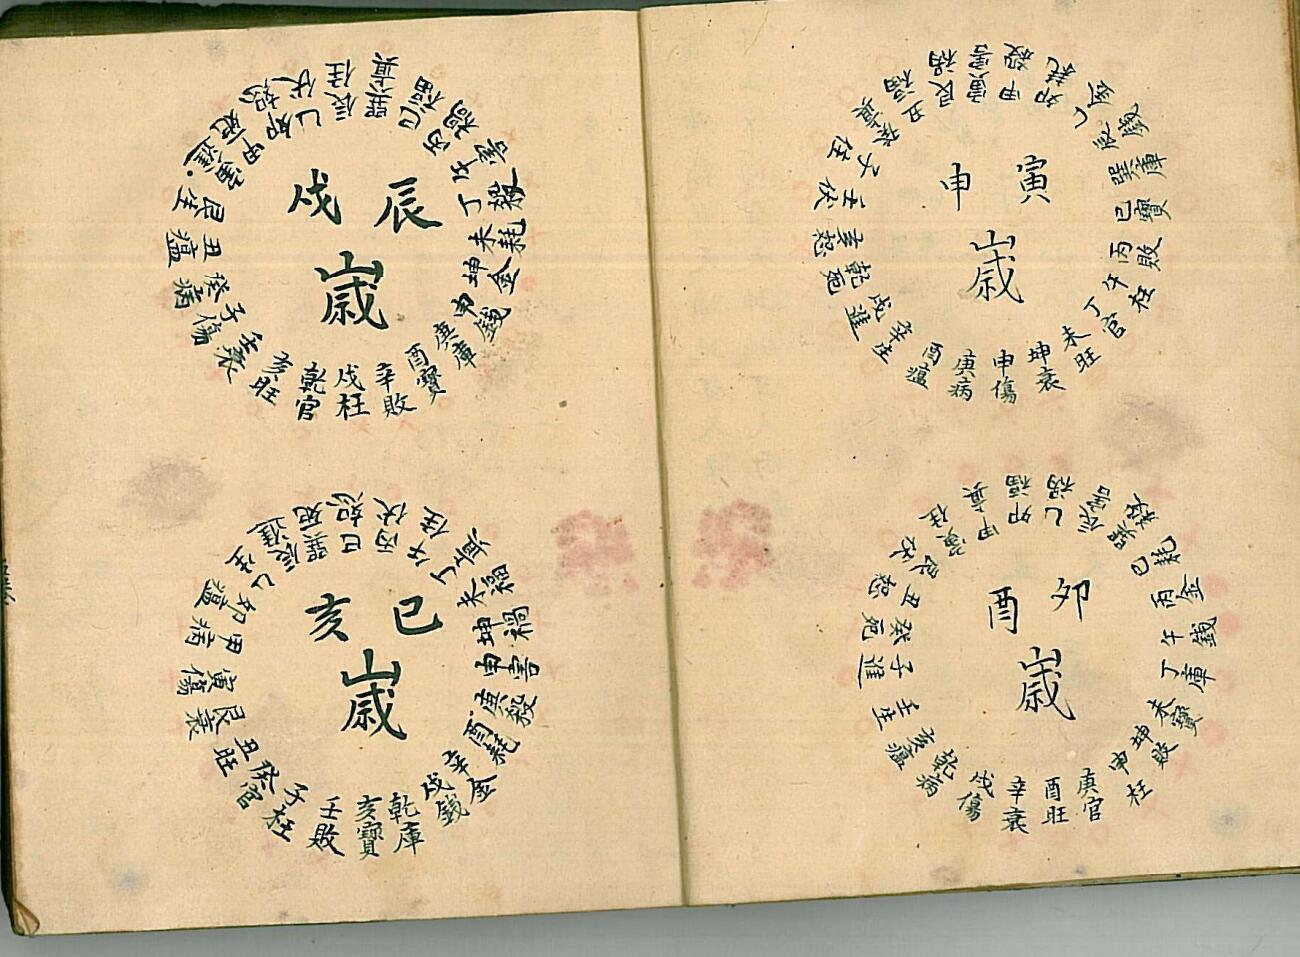 寅申
歲
寅害
甲殺
卯耗
乙金
辰錢
巽庫
巳寶
丙敗
午枉
丁官
未旺
坤衰
申傷
庚病
酉瘟
辛生
戌進
乾宛
亥恕
壬伏
子住
癸眞
丑福
艮禍
卯酉
歲
卯福
乙禍
辰害
巽殺
巳耗
丙金
午錢
丁庫
未寶
坤敗
申枉
庚官
酉旺
辛衰
戌傷
乾病
亥瘟
壬生
子進
癸宛
丑恕
艮伏
寅住
甲眞
辰戌
歲
巽眞
巳福
丙禍
午害
丁殺
未耗
坤金
申錢
庚庫
酉寶
辛敗
戌枉
乾官
亥旺
壬衰
子傷
癸病
丑瘟
艮生
寅進
甲宛
卯恕
乙伏
辰住
巳亥
歲
巳恕
丙伏
午住
丁眞
未福
坤禍
申害
庚殺
酉耗
辛金
戌錢
乾庫
亥寶
壬敗
子枉
癸官
丑旺
艮衰
寅傷
甲病
卯瘟
乙生
辰進
巽宛